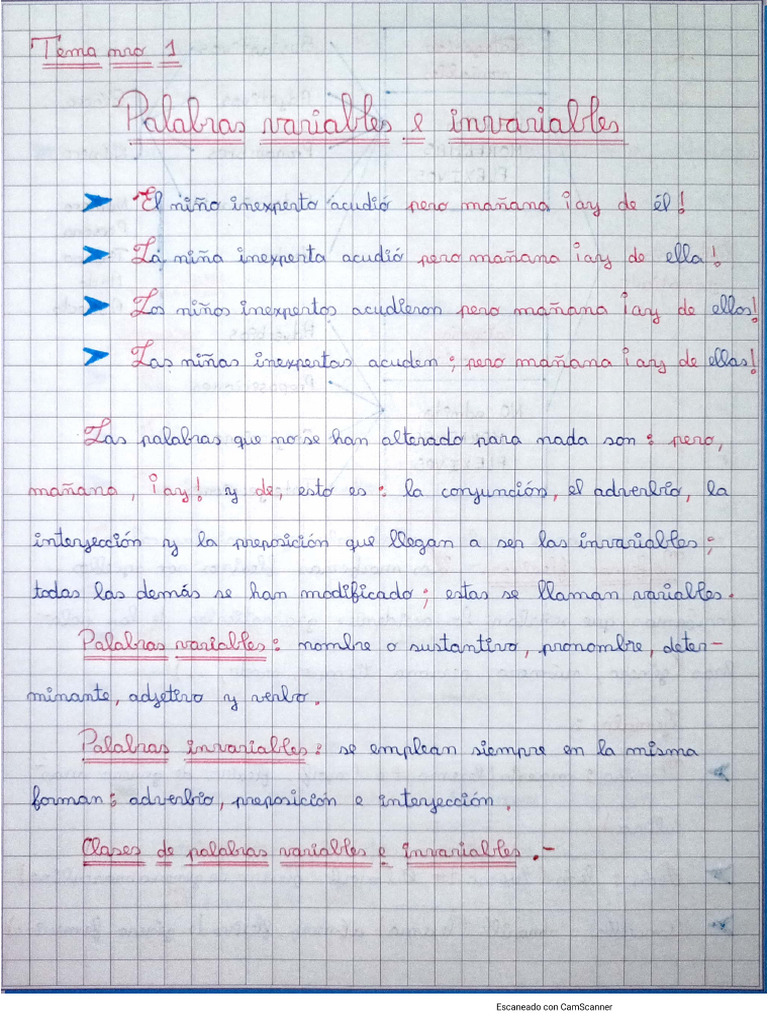 Tema nro 1
Palabras variables e invariables
El niño inexperto acudió pero mañana ¡ay de él!
La niña inexperta acudió pero mañana ¡ay de ella!
Los niños inexpertos acudieron pero mañana ¡ay de ellos!
Las niñas inexpertas acuden; pero mañana ¡ay de ellas!
Las palabras que no se han alterado para nada son: pero,
mañana, ¡ay! y de; esto es: la conjunción, el adverbio, la
interjección y la preposición que llegan a ser las invariables;
todas las demás se han modificado; estas se llaman variables.
Palabras variables: nombre o sustantivo, pronombre, deter-
minante, adjetivo y verbo.
Palabras invariables: se emplean siempre en la misma
forman: adverbio, preposición e interjección.
Clases de palabras variables e invariables.-
Escaneado con CamScanner